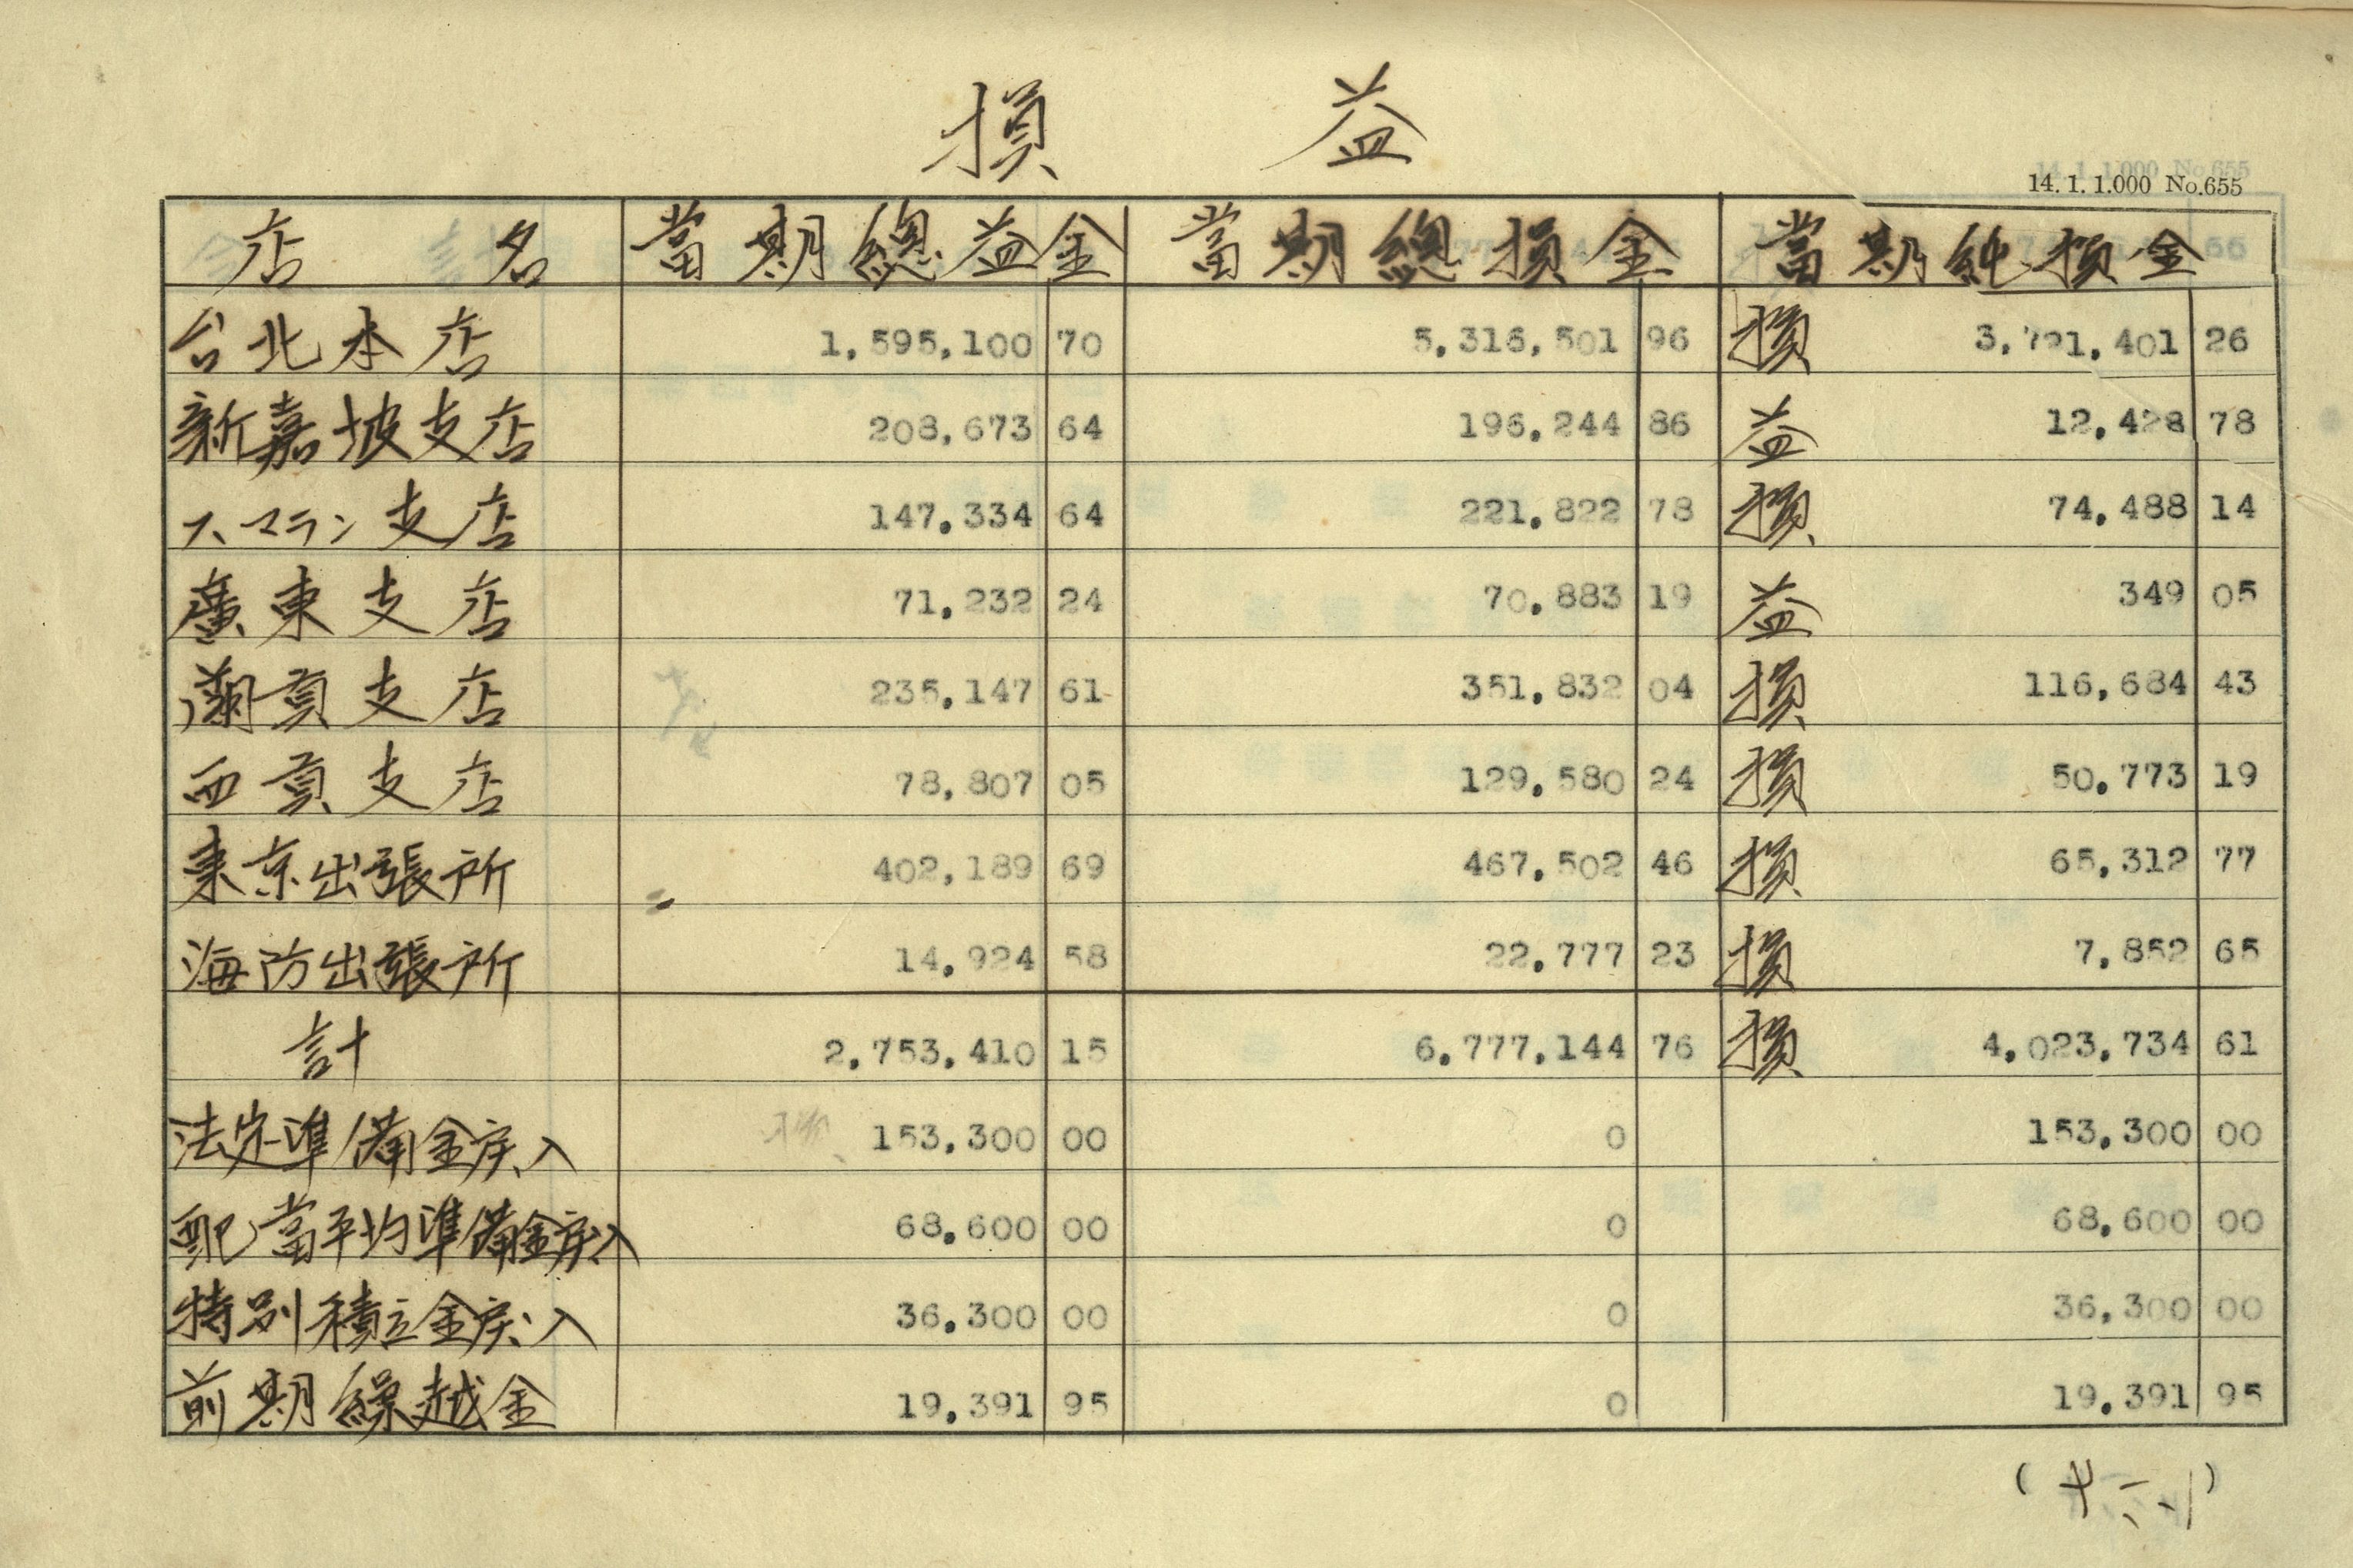 損 益
14. 1. 1.000 No.655
店 名 當期總益金 當期總損金 當期純損金
台北本店 1,595,100 70 5,316,501 96 損 3,721,401 26
新嘉坡支店 208,673 64 196,244 86 益 12,428 78
スマラン支店 147,334 64 221,822 78 損 74,488 14
廣東支店 71,232 24 70,883 19 益 349 05
蘭貢支店 235,147 61 351,832 04 損 116,684 43
西貢支店 78,807 05 129,580 24 損 50,773 19
東京出張所 402,189 69 467,502 46 損 65,312 77
海防出張所 14,924 58 22,777 23 損 7,852 65
計 2,753,410 15 6,777,144 76 損 4,023,734 61
法定準備金戻入 153,300 00 0 153,300 00
配當平均準備金戻入 68,600 00 0 68,600 00
特別積立金戻入 36,300 00 0 36,300 00
前期繰越金 19,391 95 0 19,391 95